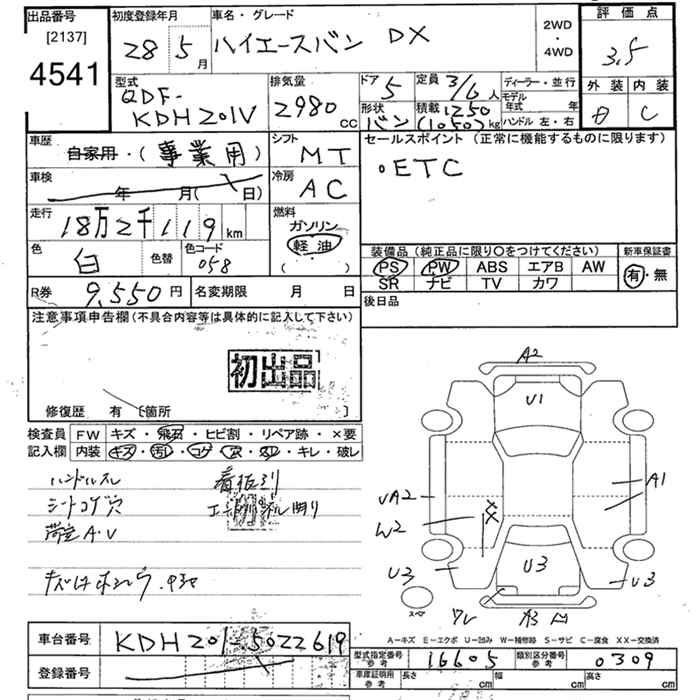 出品番号
[2137]
4541
初度登録年月
28 5月
車名・グレード
ハイエースバン DX
2WD
・
4WD
評価点
3.5
外装 内装
C
型式
QDF-
KDH201V
排気量
2980 CC
ドア 5
形状 バン
定員 3/6人
積載 1250
(1050)kg
ディーラー・並行
モデル年式 年
ハンドル 左・右
車歴
自家用・(事業用)
シフト
MT
セールスポイント (正常に機能するものに限ります)
。ETC
車検
年 月( 日)
冷房
AC
走行
18万2千119km
燃料
ガソリン
軽油
( )
色
白
色替
色コード
058
装備品(純正品に限り〇をつけてください)
PS PW ABS エアB AW
SR ナビ TV カワ
新車保証書
有・無
R券 9,550円
名変期限 月 日
後日品
注意事項申告欄(不具合内容等は具体的に記入して下さい)
初出品
修復歴 有 〔箇所 〕
検査員記入欄
FW キズ・飛石・ヒビ割・リペア跡・×要
内装 キズ・汚レ・コゲ・穴・スレ・キレ・破レ
ハンドルスレ
シートコゲ穴
荷室A・U
A2
U1
UA2
W2
XX
A1
U3
U3
U3
A3
スペア
A-キズ E-エクボ U-凹み W-補修跡 S-サビ C-腐食 XX-交換済
車台番号
KDH201-5022619
登録番号
型式指定番号
参考
16605
類別区分番号
参考
0309
車庫証明用
参考
長さ cm
幅 cm
高さ cm